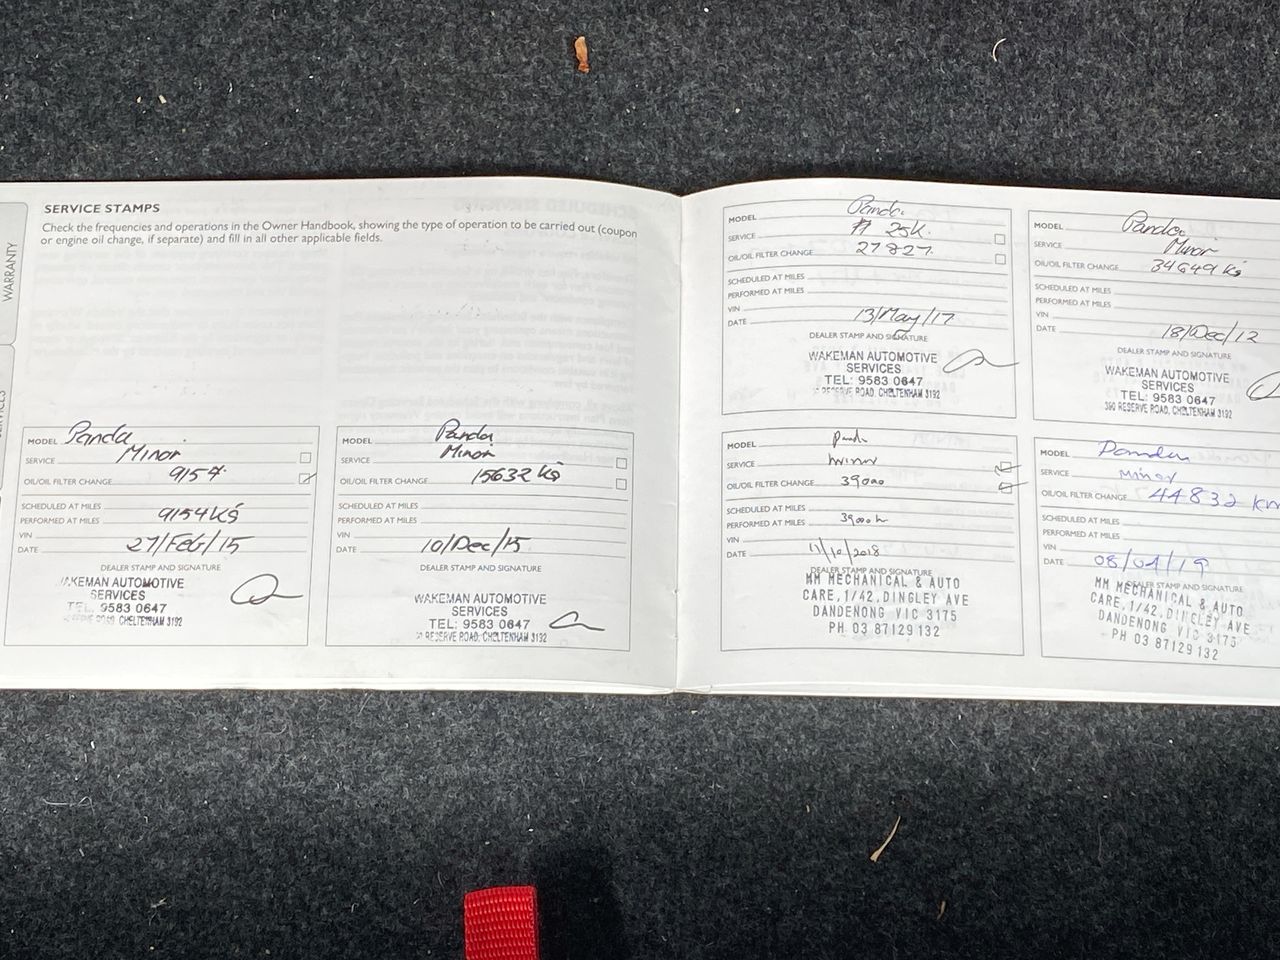 WARRANTY
SERVICES
SERVICE STAMPS
Check the frequencies and operations in the Owner Handbook, showing the type of operation to be carried out (coupon
or engine oil change, if separate) and fill in all other applicable fields.
MODEL Panda
SERVICE Minor
OIL/OIL FILTER CHANGE 9154
SCHEDULED AT MILES
PERFORMED AT MILES 9154 Ks
VIN
DATE 27/Feb/15
DEALER STAMP AND SIGNATURE
WAKEMAN AUTOMOTIVE
SERVICES
TEL: 9583 0647
RESERVE ROAD, CHELTENHAM 3192
MODEL Panda
SERVICE Minor
OIL/OIL FILTER CHANGE 15632 Ks
SCHEDULED AT MILES
PERFORMED AT MILES
VIN
DATE 10/Dec/15
DEALER STAMP AND SIGNATURE
WAKEMAN AUTOMOTIVE
SERVICES
TEL: 9583 0647
RESERVE ROAD, CHELTENHAM 3192
MODEL Panda
SERVICE 25K
OIL/OIL FILTER CHANGE 27827
SCHEDULED AT MILES
PERFORMED AT MILES
VIN
DATE 13/May/17
DEALER STAMP AND SIGNATURE
WAKEMAN AUTOMOTIVE
SERVICES
TEL: 9583 0647
RESERVE ROAD, CHELTENHAM 3192
MODEL Panda
SERVICE Minor
OIL/OIL FILTER CHANGE 34649 Ks
SCHEDULED AT MILES
PERFORMED AT MILES
VIN
DATE 18/Dec/12
DEALER STAMP AND SIGNATURE
WAKEMAN AUTOMOTIVE
SERVICES
TEL: 9583 0647
390 RESERVE ROAD, CHELTENHAM 3192
MODEL Panda
SERVICE minor
OIL/OIL FILTER CHANGE 39000
SCHEDULED AT MILES
PERFORMED AT MILES 39000
VIN
DATE 11/10/2018
DEALER STAMP AND SIGNATURE
MM MECHANICAL & AUTO
CARE, 1/42, DINGLEY AVE
DANDENONG VIC 3175
PH 03 87129 132
MODEL Panda
SERVICE minor
OIL/OIL FILTER CHANGE 44832 km
SCHEDULED AT MILES
PERFORMED AT MILES
VIN
DATE 08/04/19
DEALER STAMP AND SIGNATURE
MM MECHANICAL & AUTO
CARE, 1/42, DINGLEY AVE
DANDENONG VIC 3175
PH 03 87129 132